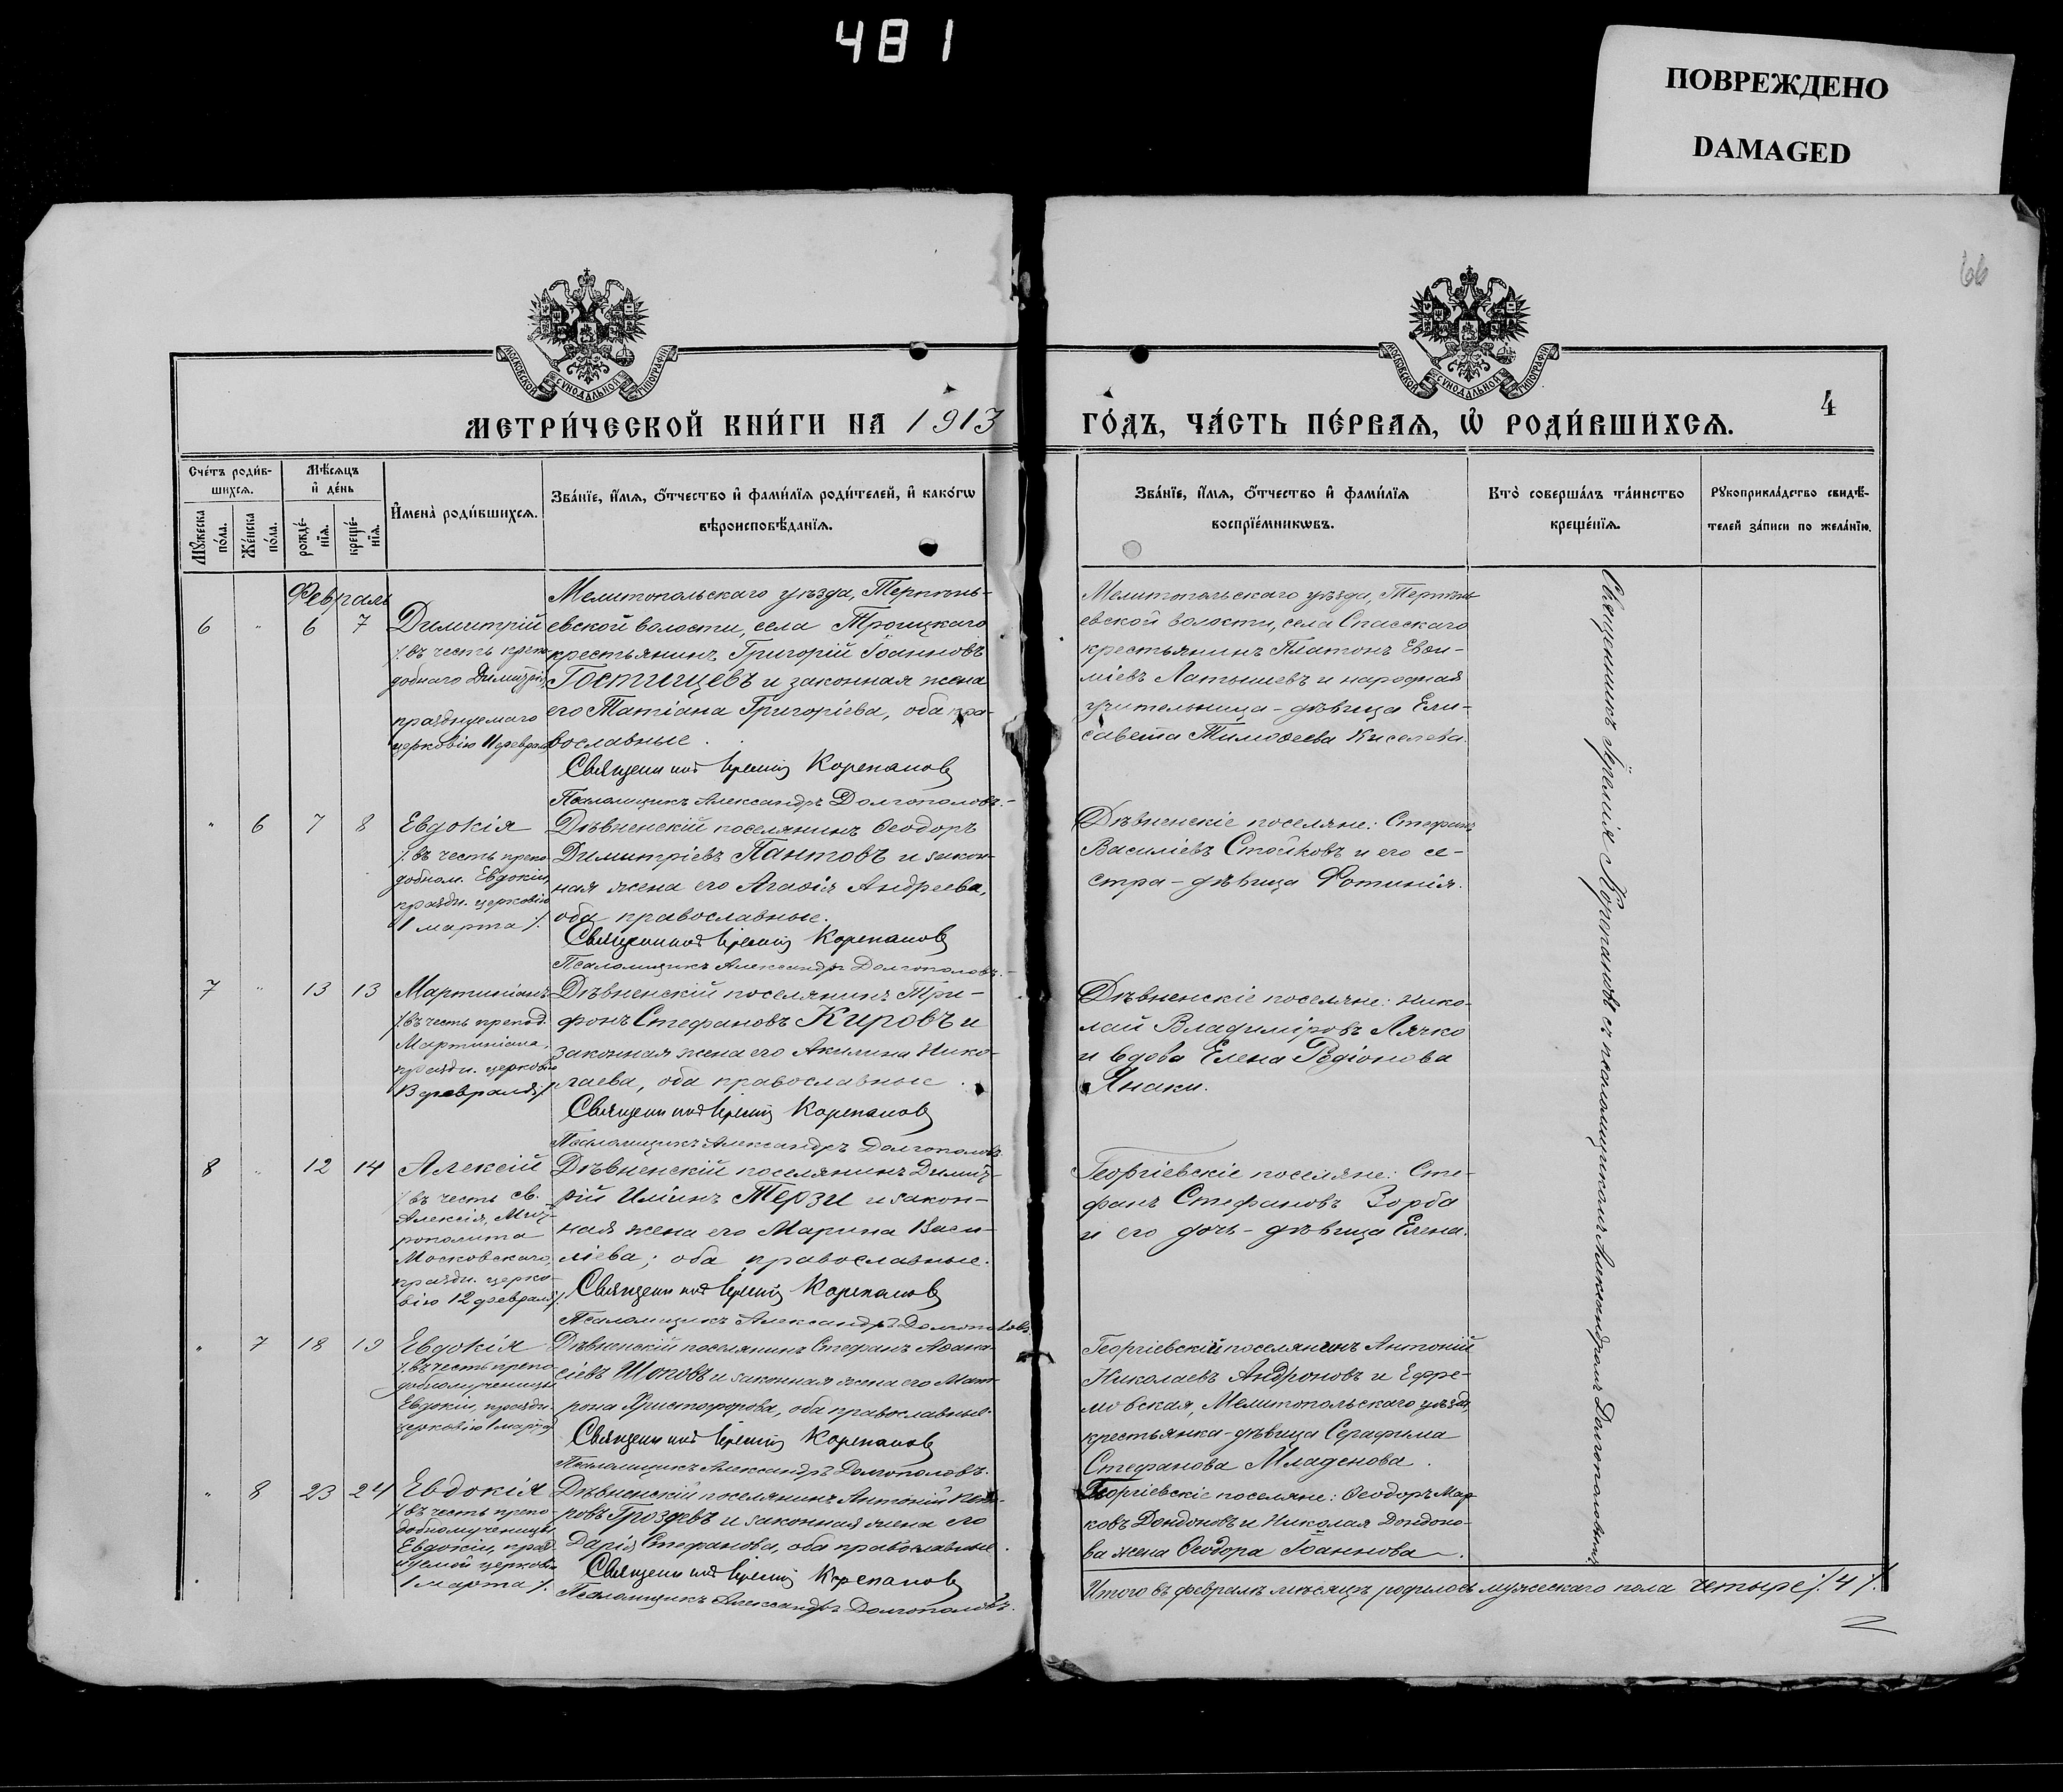 481
ПОВРЕЖДЕНО
DAMAGED
66
МОСКОВСКОЙ СѴНОДАЛЬНОЙ ТИПОГРАФІИ
МОСКОВСКОЙ СѴНОДАЛЬНОЙ ТИПОГРАФІИ
МЕТРИ́ЧЕСКОЙ КНИ́ГИ НА 1913
ГО́ДЪ, ЧА́СТЬ ПЕ́РВАѦ, Ѡ҆ РОДИ́ВШИХСѦ.
4
Сче́тъ роди́в-
шихсѧ.
Мꙋ́жеска по́ла.
Же́нска по́ла.
Мѣ́сѧцъ
и҆ де́нь
рожде́-
нїѧ.
креще́-
нїѧ.
И҆мена̀ роди́вшихсѧ.
Зва́нїе, и҆́мѧ, ѻ҆́тчество и҆ фами́лїѧ роди́телей, и҆ како́гѡ
вѣроисповѣ́данїѧ.
Зва́нїе, и҆́мѧ, ѻ҆́тчество и҆ фами́лїѧ
воспрїе́мникѡвъ.
Кто̀ соверша́лъ та́инство
креще́нїѧ.
Рꙋкоприкла́дство свидѣ́-
телей за́писи по жела́нїю.
Февраль
6 " 6 7
Димитрій
/въ честь препо-
добнаго Димитрія,
празднуемаго
церковію 11 февраля/
Мелитопольскаго уѣзда, Терпѣнь-
евской волости, села Троицкаго
крестьянинъ Григорій Іоанновъ
Гостищевъ и законная жена
его Татіана Григоріева, оба пра-
вославные.
Священникъ Іеремія Корепановъ
Псаломщикъ Александръ Долгополовъ.
Мелитопольскаго уѣзда, Терпѣнь-
евской волости, села Спасскаго
крестьянинъ Платонъ Евѳи-
міевъ Латышевъ и народная
учительница - дѣвица Ели-
савета Тимоѳеева Киселева.
" 6 7 8
Евдокія
/въ честь препо-
добном. Евдокіи,
праздн. церковію
1 марта/.
Дѣвненскій поселянинъ Ѳеодоръ
Димитріевъ Пантовъ и закон-
ная жена его Агаѳія Андреева,
оба православные.
Священникъ Іеремія Корепановъ
Псаломщикъ Александръ Долгополовъ.
Дѣвненскіе поселяне: Стефанъ
Василіевъ Стойковъ и его се-
стра - дѣвица Фотинія.
7 " 13 13
Мартиніанъ
/въ честь препод.
Мартиніана,
праздн. церковію
13 февраля/.
Дѣвненскій поселянинъ Три-
фонъ Стефановъ Кировъ и
законная жена его Акилина Нико-
лаева, оба православные.
Священникъ Іеремія Корепановъ
Псаломщикъ Александръ Долгополовъ
Дѣвненскіе поселяне: Нико-
лай Владиміровъ Лячко
и вдова Елена Родіонова
Янаки.
8 " 12 14
Алексій
/въ честь св.
Алексія, Мит-
рополита
Московскаго,
праздн. церко-
вію 12 февраля/.
Дѣвненскій поселянинъ Димит-
рій Иліинъ Терзи и закон-
ная жена его Марина Васи-
ліева; оба православные.
Священникъ Іеремія Корепановъ
Псаломщикъ Александръ Долгополовъ.
Георгіевскіе поселяне: Сте-
фанъ Стефановъ Зорба
и его дочь - дѣвица Елена.
" 7 18 19
Евдокія
/въ честь препо-
добномученицы
Евдокіи, праздн.
церковію 1 марта/
Дѣвненскій поселянинъ Стефанъ Аѳана-
сіевъ Шоповъ и законная жена его Мат-
рона Христофорова, оба православные.
Священникъ Іеремія Корепановъ
Псаломщикъ Александръ Долгополовъ.
Георгіевскій поселянинъ Антоній
Николаевъ Андроновъ и Ефре-
мовская, Мелитопольскаго уѣзда,
крестьянка - дѣвица Серафима
Стефанова Младенова.
" 8 23 24
Евдокія
/въ честь препо-
добномученицы
Евдокіи, празд-
нуемой церковію
1 марта/.
Дѣвненскій поселянинъ Антоній
ровъ Гроздевъ и законная жена его
Дарія Стефанова, оба православные.
Священникъ Іеремія Корепановъ
Псаломщикъ Александръ Долгополовъ.
Георгіевскіе поселяне: Ѳеодоръ Мар-
ковъ Дондоновъ и Николая Дондоно-
ва жена Ѳеодора Іоаннова.
Священникъ Іеремія Корепановъ съ псаломщикомъ Александромъ Долгополовымъ.
Итого въ февралѣ мѣсяцѣ родилось мужескаго пола четыре /.4/.